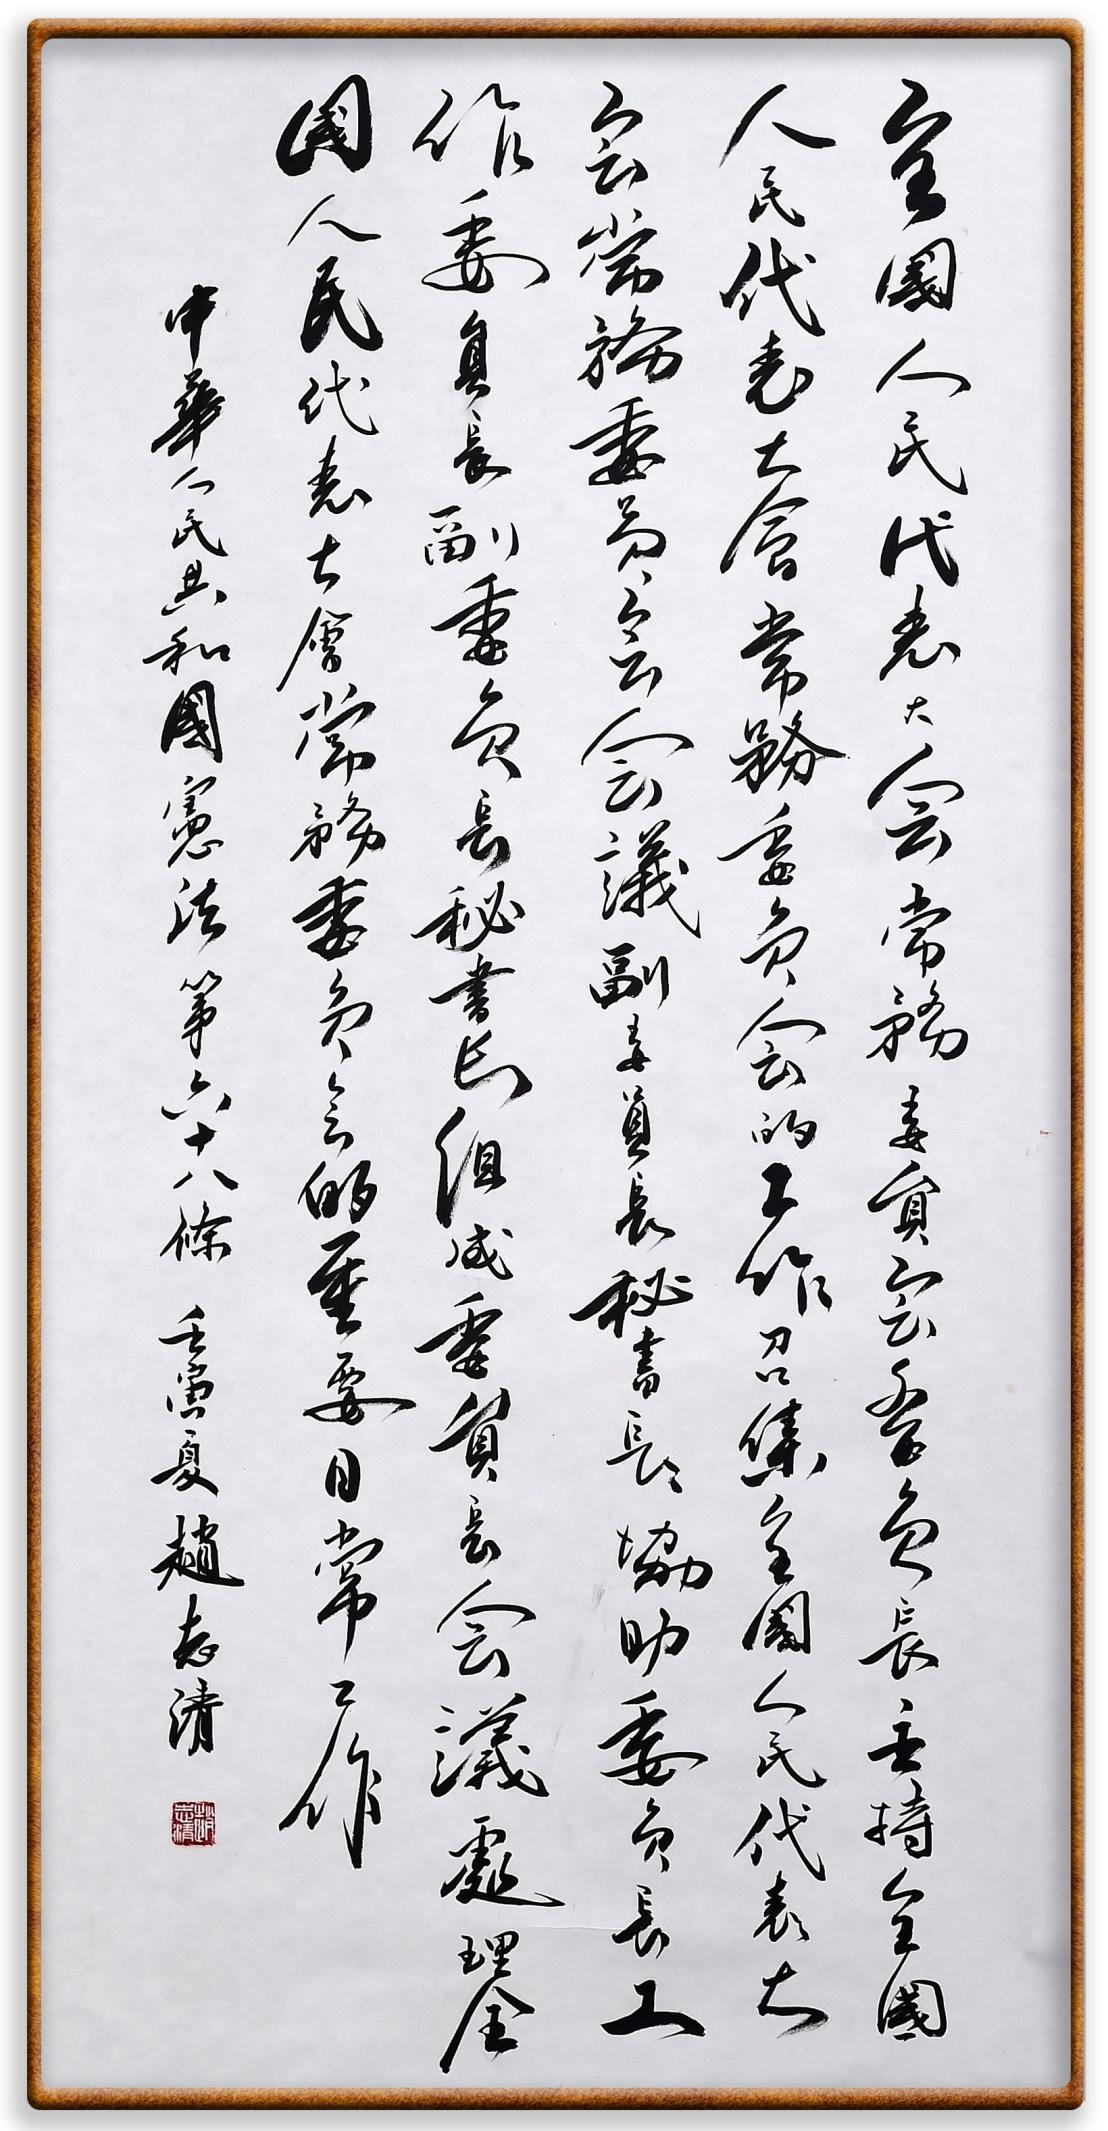 全國人民代表大会常務委員会委员長主持全國
人民代表大會常務委员会的工作召集全國人民代表大
会常務委员会会議副委員長秘書長協助委员長工
作委員長副委员長秘書長組成委員長会議處理全
國人民代表大會常務委员会的重要日常工作
中華人民共和國憲法第六十八條 壬寅夏趙志清
趙志清